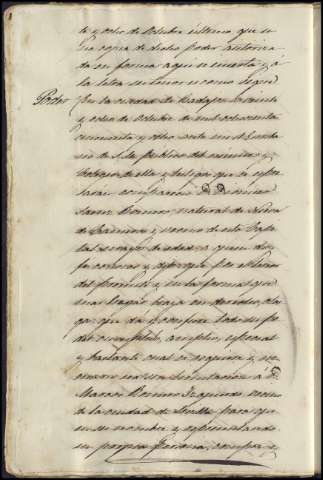 te y ocho de Octubre último que se
una copia de dicho poder autoriza-
da en forma aquí se inserta y a
la letra su tenor es como sigue
Poder En la ciudad de Badajoz a veinte
y ocho de Octubre de mil ochocientos
cincuenta y ocho ante mi el Escriba-
no de S. M. público del número y
Colegio de ella y testigos que se espre-
saran compareció D.
natural de
y vecino de esta Capi-
tal mayor de edad a quien doy
fe conozco y dijo que por el tenor
del presente y en la forma que
mas haya haya en derecho, otor-
ga que da y confiere todo su po-
der cumplido, amplio, especial
y bastante cual se requiere y ne-
cesario sea sin limitacion a D.
Romero Izquierdo vecino
de la ciudad de Sevilla para que
en su nombre y representando
su propia persona,